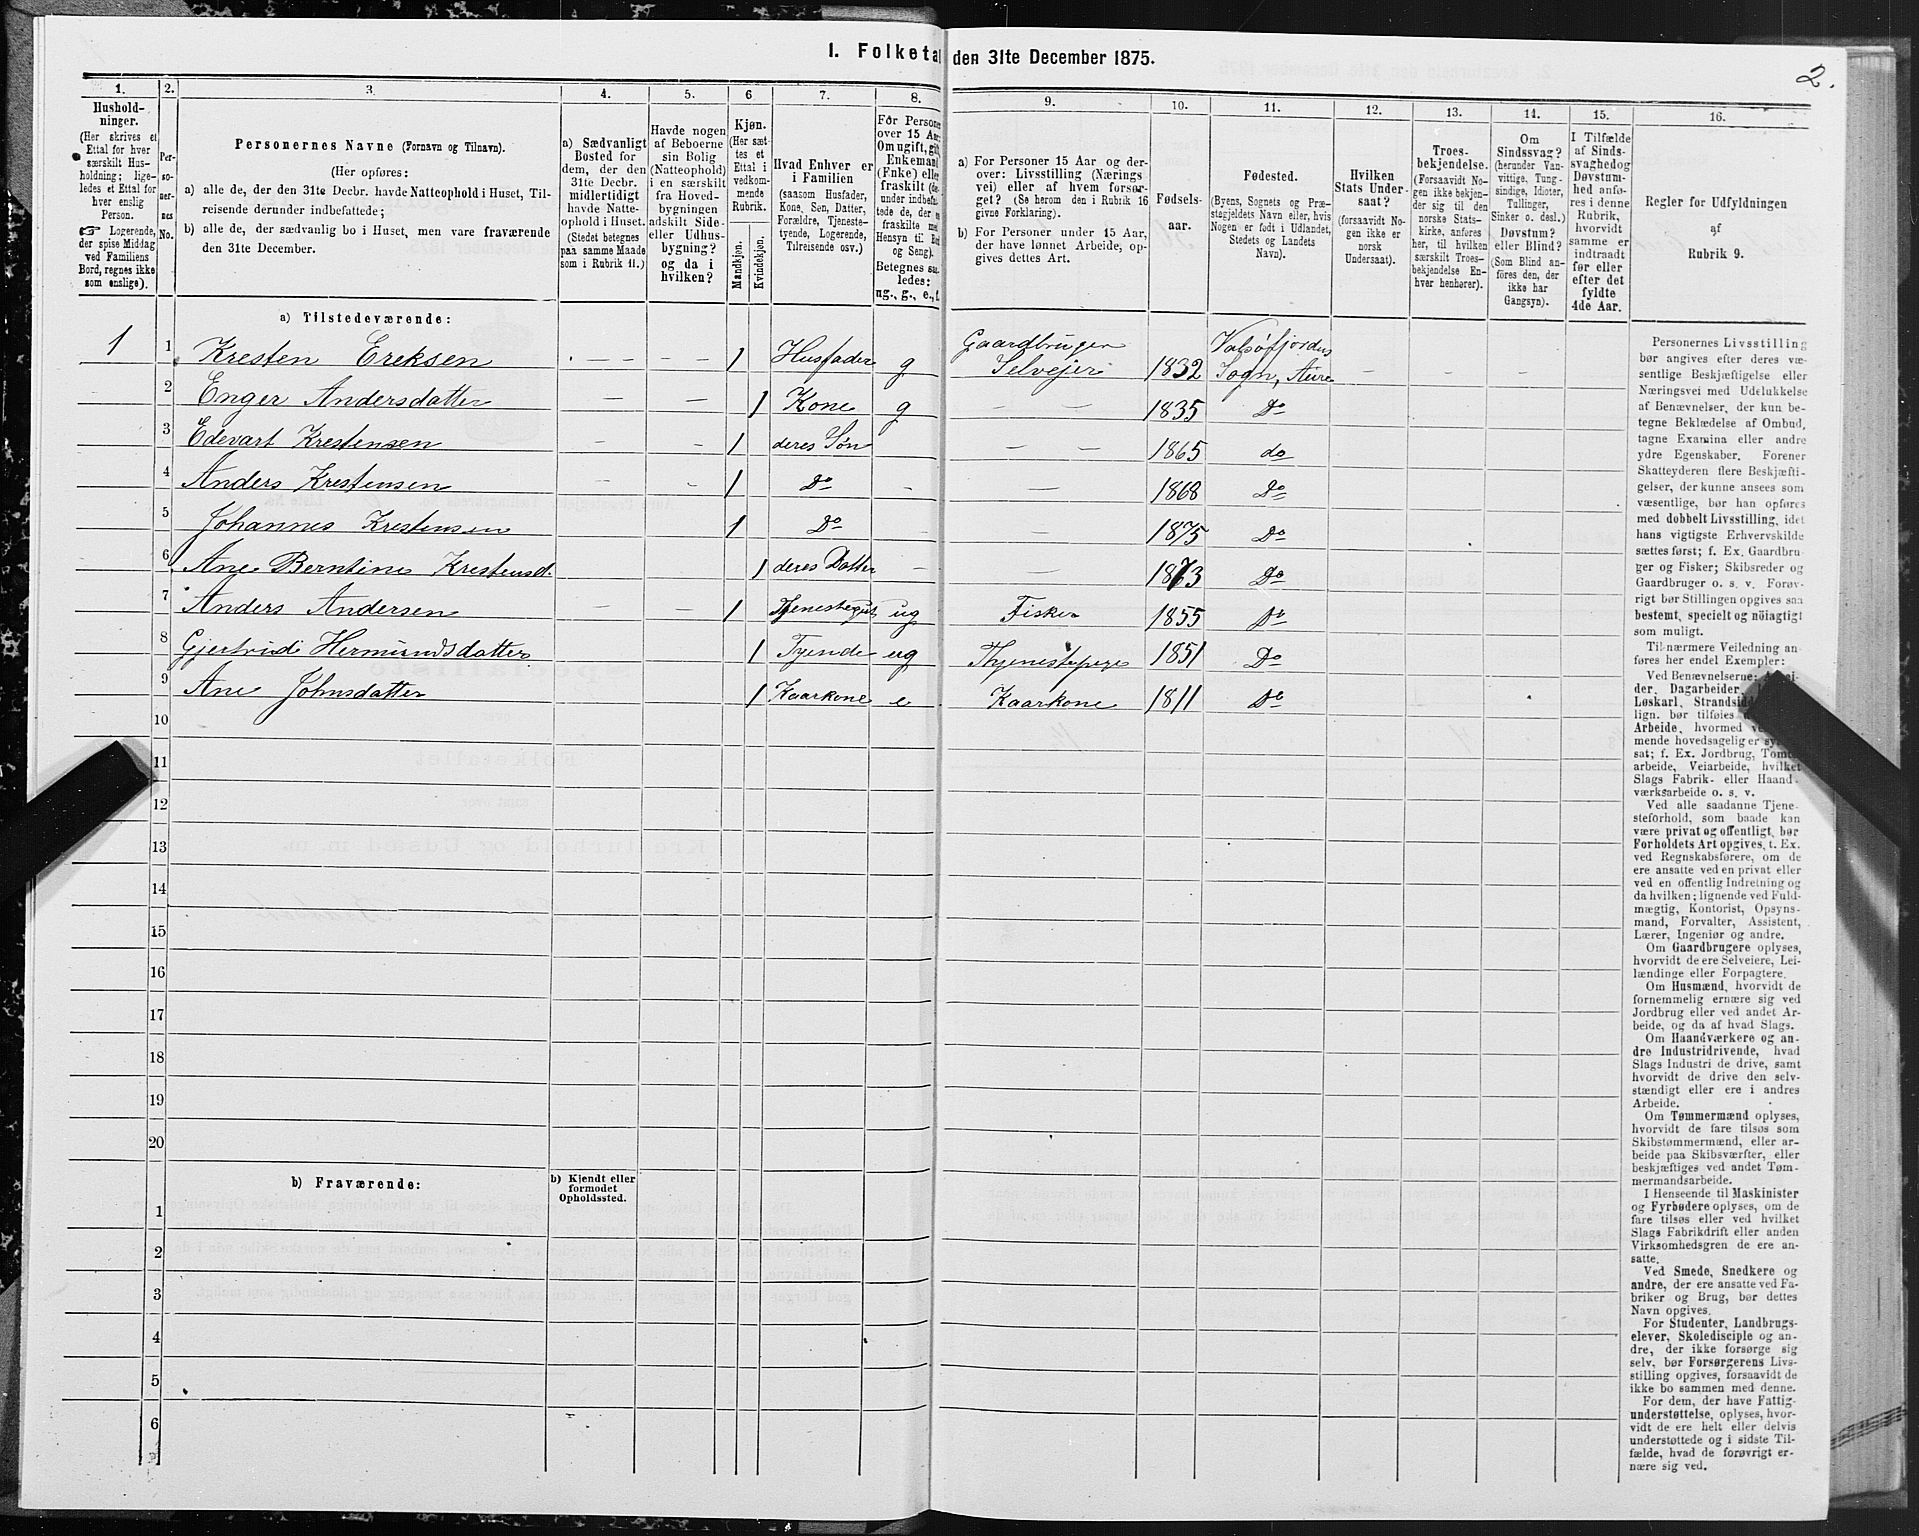 1. Folketal den 31te December 1875.
2.
1. 2. 3. 4. 5. 6 7. 8. 9. 10. 11. 12. 13. 14. 15. 16.
Hushold-
ninger.
(Her skrives et
Ettal for hver
særskilt Hus-
holdning; lige-
ledes et Ettal for
hver enslig
Person.
☞ Logerende,
der spise Middag
ved Familiens
Bord, regnes ikke
som enslige).
Per-
so-
ner-
nes
No.
Personernes Navne (Fornavn og Tilnavn).
(Her opføres:
a) alle de, der den 31te Decbr. havde Natteophold i Huset, Til-
reisende derunder indbefattede;
b) alle de, der sædvanlig bo i Huset, men vare fraværende
den 31te December.
a) Sædvanligt
Bosted for
dem, der den
31te Decbr.
midlertidigt
havde Natte-
ophold i Huset.
(Stedet betegnes
paa samme Maade
som i Rubrik 11.)
Havde nogen
af Beboerne
sin Bolig
(Natteophold)
i en særskilt
fra Hoved-
bygningen
adskilt Side-
eller Udhus-
bygning?
og da i
hvilken?
Kjøn.
(Her sæt-
tes et
Ettal i
vedkom-
mende
Rubrik.
Mandkjøn.
Kvindekjøn.
Hvad Enhver er
i Familien
(saasom Husfader,
Kone, Søn, Datter,
Forældre, Tjeneste-
tyende, Logerende,
Tilreisende osv.)
For Personer
over 15 Aar:
Om ugift, gift,
Enkemand
(Enke) eller
fraskilt
Betegnes saa-
ledes:
ug., g., e., f.
a) For Personer 15 Aar og der-
over: Livsstilling (Nærings
vei) eller af hvem forsør-
get? (Se herom den i Rubrik 16
givne Forklaring).
b) For Personer under 15 Aar,
der have lønnet Arbeide, op-
gives dettes Art.
Fødsels-
aar.
Fødested.
(Byens, Sognets og Præ-
stegjeldets Navn eller, hvis
Nogen er født i Udlandet,
Stedets og Landets
Navn).
Hvilken
Stats Under-
saat?
(forsaavidt No-
gen ikke er
norsk
Undersaat).
Troes-
bekjendelse.
(Forsaavidt No-
gen ikke bekjen-
der sig til den
norske Stats-
kirke, anføres
her, til hvilken
særskilt Troes-
bekjendelse En-
hver henhører).
Om
Sindssvag?
(herunder Van-
vittige, Tung-
sindige, Idioter,
Tullinger,
Sinker o. desl.)
Døvstum?
eller Blind?
(Som Blind an-
føres den, der
ikke har
Gangsyn).
I Tilfælde
af Sinds-
svaghed og
Døvstum-
hed anfø-
res i denne
Rubrik,
hvorvidt
samme er
indtraadt
før eller
efter det
fyldte
4de Aar.
Regler for Udfyldningen
af
Rubrik 9.
a) Tilstedeværende:
1 1 Kresten Ereksen - - - 1 Husfader g Gaardbruger Selvejer 1832 Valsøfjordes Sogn, Aure - - - -
2 Enger Andersdatter - - 1 Kone g - - 1835 Do
3 Edevart Krestensen - - 1 deres Søn - - 1865 do
4 Anders Krestensen - - 1 Do - - 1868 Do
5 Johannes Krestensen 1 Do - - 1875 Do
6 Ane Berntine Krestensd. 1 deres Datter - - 1873 Do
7 Anders Andersen - - 1 Tjenestegut ug Fisker 1855 Do
8 Gjertrud Hermundsdatter 1 Tyende ug Thjenestepige 1851 Do
9 Ane Johnsdatter 1 Kaarkone e Kaarkone 1811 Do
10
11
12
13
14
15
16
17
18
19
20
b) Fraværende:
b) Kjendt eller
formodet
Opholdssted.
1
2
3
4
5
6
Personernes Livsstilling
bør angives efter deres væ-
sentlige Beskjæftigelse eller
Næringsvei med Udelukkelse
af Benævnelser, der kun be-
tegne Beklædelse af Ombud,
tagne Examina eller andre
ydre Egenskaber. Forener
Skatteyderen flere Beskjæfti-
gelser, der kunne ansees som
væsentlige, bør han opføres
med dobbelt Livsstilling, idet
hans vigtigste Erhvervskilde
sættes først; f. Ex. Gaardbru-
ger og Fisker; Skibsreder og
Gaardbruger o. s. v. Forøv-
rigt bør Stillingen opgives saa
bestemt, specielt og nöiagtigt
som muligt.
Til nærmere Veiledning an-
føres her endel Exempler:
Ved Benævnelserne:
der, Dagarbeider,
Løskarl, Strandsid
lign. bør tilføies
Arbeide, hvormed
mende hovedsagelig er
sat; f. Ex. Jordbrug, Tomt
arbeide, Veiarbeide, hvilket
Slags Fabrik- eller Haand-
værksarbeide o. s. v.
Ved alle saadanne Tjene-
steforhold, som baade kan
være privat og offentligt, bør
Forholdets Art opgives, t. Ex.
ved Regnskabsførere, om de
ere ansatte ved en privat eller
ved en offentlig Indretning og
da hvilken; lignende ved Fuld-
mægtig, Kontorist, Opsyns-
mand, Forvalter, Assistent,
Lærer, Ingeniør og andre.
Om Gaardbrugere oplyses,
hvorvidt de ere Selveiere, Lei-
lændinge eller Forpagtere.
Om Husmænd, hvorvidt de
fornemmelig ernære sig ved
Jordbrug eller ved andet Ar-
beide, og da af hvad Slags.
Om Haandværkere og an-
dre Industridrivende, hvad
Slags Industri de drive, samt
hvorvidt de drive den selv-
stændigt eller ere i andres
Arbeide.
Om Tømmermænd oplyses,
hvorvidt de fare tilsøs som
Skibstømmermænd, eller ar-
beide paa Skibsværfter, eller
beskjæftiges ved andet Tøm-
mermandsarbeide.
I Henseende til Maskinister
og Fyrbødere oplyses, om de
fare tilsøs eller ved hvilket
Slags Fabrikdrift eller anden
Virksomhedsgren de ere an-
satte.
Ved Smede, Snedkere og
andre, der ere ansatte ved Fa-
briker og Brug, bør dettes
Navn opgives.
For Studenter, Landbrugs-
elever, Skoledisciple og an-
dre, der ikke forsørge sig
selv, bør Forsørgerens Livs-
stilling opgives, forsaavidt de
ikke bo sammen med denne.
For dem, der have Fattig-
understøttelse, oplyses, hvor-
vidt de ere helt eller delvis
understøttede og i sidste Til-
fælde, hvad de forøvrigt er-
nære sig ved.